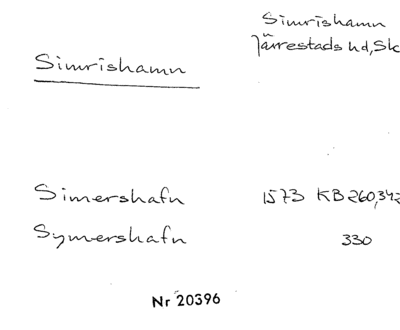 Simrishamn
Järrestads hd, Sk
Simrishamn
Simershafn 1573 KB 260, 342
Symershafn 330
Nr 20396